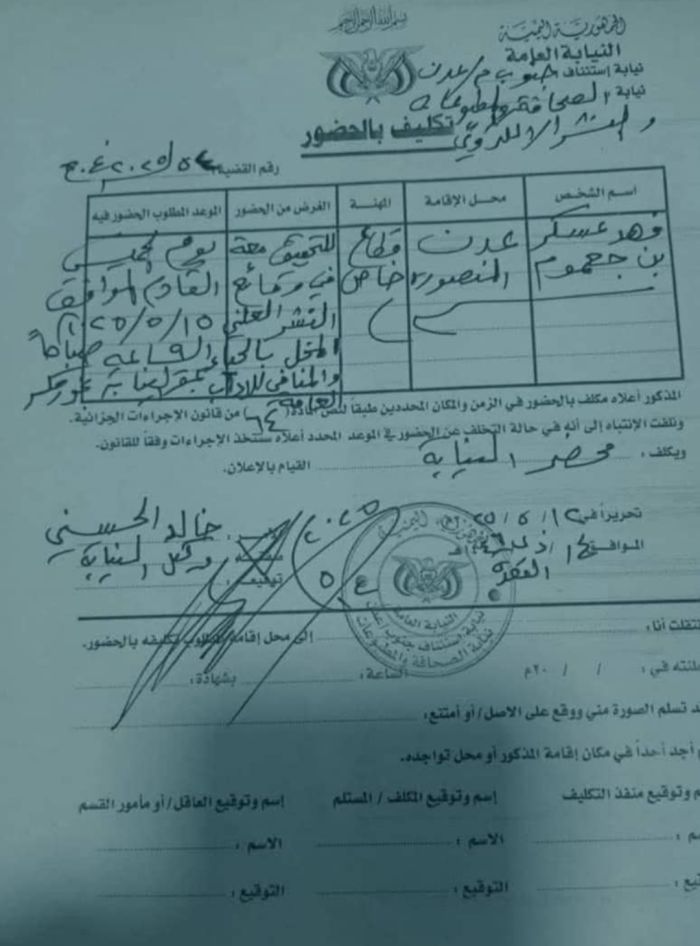 بسم الله الرحمن الرحيم
الجمهورية اليمنية
النيابة العامة
نيابة إستئناف جنوب م/عدن
نيابة الصحافة والمطبوعات
والنشر الالكتروني
تكليف بالحضور
رقم القضية:
اسم الشخص | محل الإقامة | المهنة | الغرض من الحضور | الموعد المطلوب الحضور فيه
فهد عسكر | عدن | قطاع | للتحقيق معه | يوم الخميس
بن جعموم | المنصورة | خاص | في وقائع | القادم الموافق
النشر العلني | ٢٠٢٥/٥/١٥
المخل بالحياء | الساعة صباحاً
والمنافي للاداب | بمقر النيابة
العامة
المذكور أعلاه مكلف بالحضور في الزمن والمكان المحددين طبقاً لنص المادة (٦٤) من قانون الإجراءات الجزائية.
ونلفت الإنتباه إلى أنه في حالة التخلف عن الحضور في الموعد المحدد أعلاه ستتخذ الإجراءات وفقاً للقانون.
ويكلف : محضر النيابة القيام بالإعلان.
تحريراً في ١٢/٥/٢٥
الموافق ١٤/ذي
القعدة
خالد الحسني
وكيل النيابة
٢٠٢٥
الجمهورية اليمنية
النيابة العامة
نيابة إستئناف جنوب عدن
نيابة الصحافة والمطبوعات
انتقلت أنا : إلى محل إقامة المطلوب تكليفه بالحضور.
في : / / ٢٠م الساعة: بشهادة:
تسلم الصورة مني ووقع على الاصل/ أو أمتنع:
أجد أحداً في مكان إقامة المذكور أو محل تواجده.
وتوقيع منفذ التكليف | إسم وتوقيع المكلف / المستلم | إسم وتوقيع العاقل/ أو مأمور القسم
الاسم : | الاسم :
التوقيع : | التوقيع :